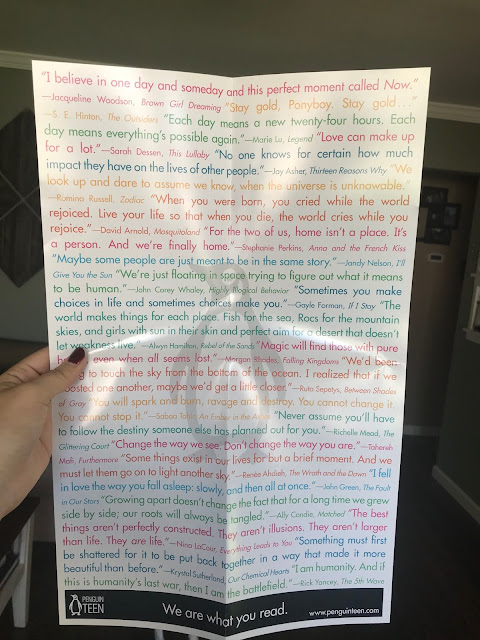 "I believe in one day and someday and this perfect moment called Now."
—Jacqueline Woodson, Brown Girl Dreaming "Stay gold, Ponyboy. Stay gold..."
—S. E. Hinton, The Outsiders "Each day means a new twenty-four hours. Each
day means everything's possible again."—Marie Lu, Legend "Love can make up
for a lot."—Sarah Dessen, This Lullaby "No one knows for certain how much
impact they have on the lives of other people."—Jay Asher, Thirteen Reasons Why "We
look up and dare to assume we know, when the universe is unknowable."
—Romina Russell, Zodiac "When you were born, you cried while the world
rejoiced. Live your life so that when you die, the world cries while you
rejoice."—David Arnold, Mosquitoland "For the two of us, home isn't a place. It's
a person. And we're finally home."—Stephanie Perkins, Anna and the French Kiss
"Maybe some people are just meant to be in the same story."—Jandy Nelson, I'll
Give You the Sun "We're just floating in space trying to figure out what it means
to be human."—John Corey Whaley, Highly Illogical Behavior "Sometimes you make
choices in life and sometimes choices make you."—Gayle Forman, If I Stay "The
world makes things for each place. Fish for the sea, Rocs for the mountain
skies, and girls with sun in their skin and perfect aim for a desert that doesn't
let weakness live."—Alwyn Hamilton, Rebel of the Sands "Magic will find those with pure
even when all seems lost."—Morgan Rhodes, Falling Kingdoms "We'd been
to touch the sky from the bottom of the ocean. I realized that if we
boosted one another, maybe we'd get a little closer."—Ruta Sepetys, Between Shades
of Gray "You will spark and burn, ravage and destroy. You cannot change it.
You cannot stop it."—Sabaa Tahir, An Ember in the Ashes "Never assume you'll have
to follow the destiny someone else has planned out for you."—Richelle Mead, The
Glittering Court "Change the way we see. Don't change the way you are."—Tahereh
Mafi, Furthermore "Some things exist in our lives for but a brief moment. And we
must let them go on to light another sky."—Renée Ahdieh, The Wrath and the Dawn "I fell
in love the way you fall asleep: slowly, and then all at once."—John Green, The Fault
in Our Stars "Growing apart doesn't change the fact that for a long time we grew
side by side; our roots will always be tangled."—Ally Condie, Matched "The best
things aren't perfectly constructed. They aren't illusions. They aren't larger
than life. They are life."—Nina LaCour, Everything Leads to You "Something must first
be shattered for it to be put back together in a way that made it more
beautiful than before."—Krystal Sutherland, Our Chemical Hearts "I am humanity. And if
this is humanity's last war, then I am the battlefield."—Rick Yancey, The 5th Wave
PENGUIN
TEEN
We are what you read.
www.penguinteen.com